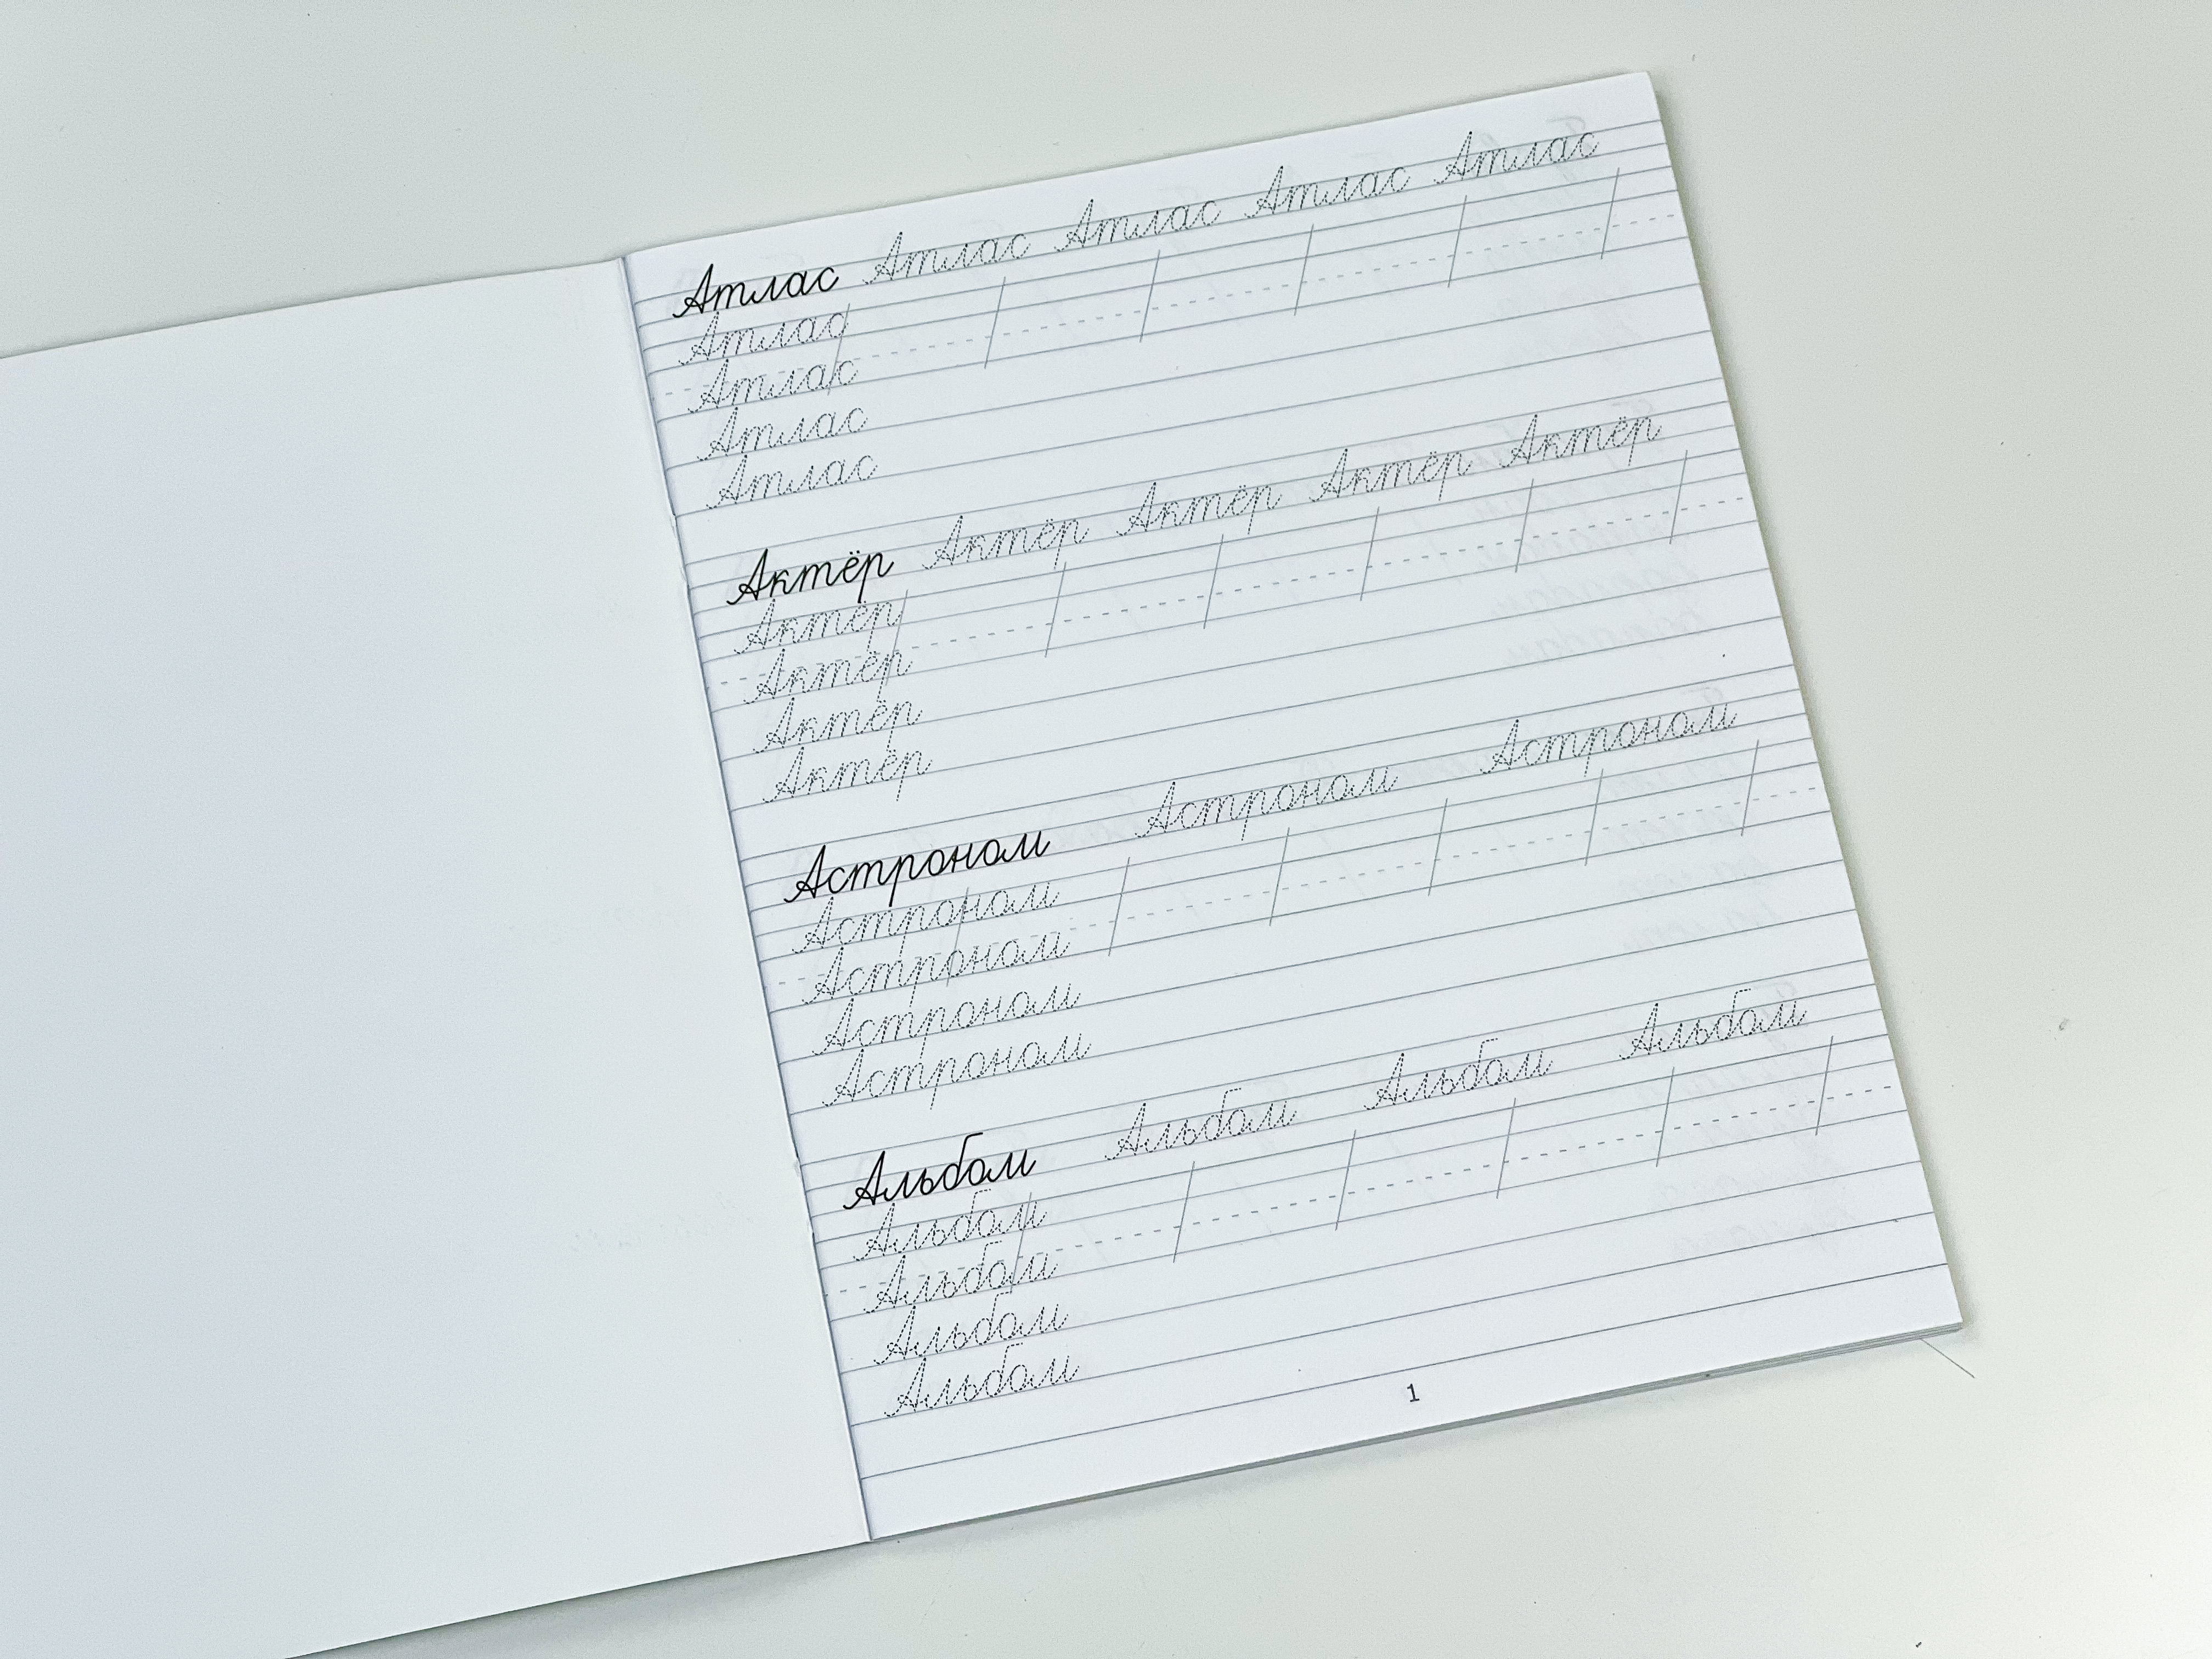 Атлас Атлас Атлас Атлас Атлас
Атлас
Атлас
Атлас
Атлас
Актёр Актёр Актёр Актёр Актёр
Актёр
Актёр
Актёр
Актёр
Астроном Астроном Астроном
Астроном
Астроном
Астроном
Астроном
Альбом Альбом Альбом Альбом
Альбом
Альбом
Альбом
Альбом
1